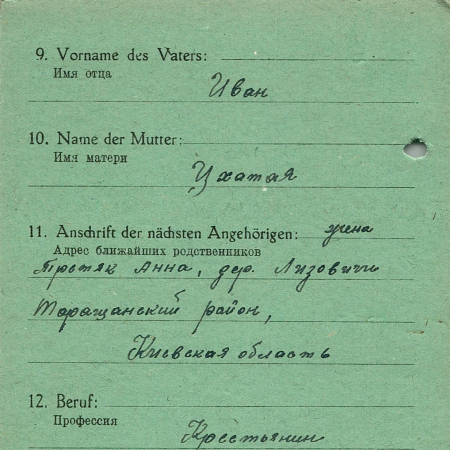 9. Vorname des Vaters:
Имя отца
Иван
10. Name der Mutter:
Имя матери
Ухатая
11. Anschrift der nächsten Angehörigen: жена
Адрес ближайших родственников
Третяк Анна, дер. Лизовичи
Таращанский район,
Киевская область
12. Beruf:
Профессия
Крестьянин